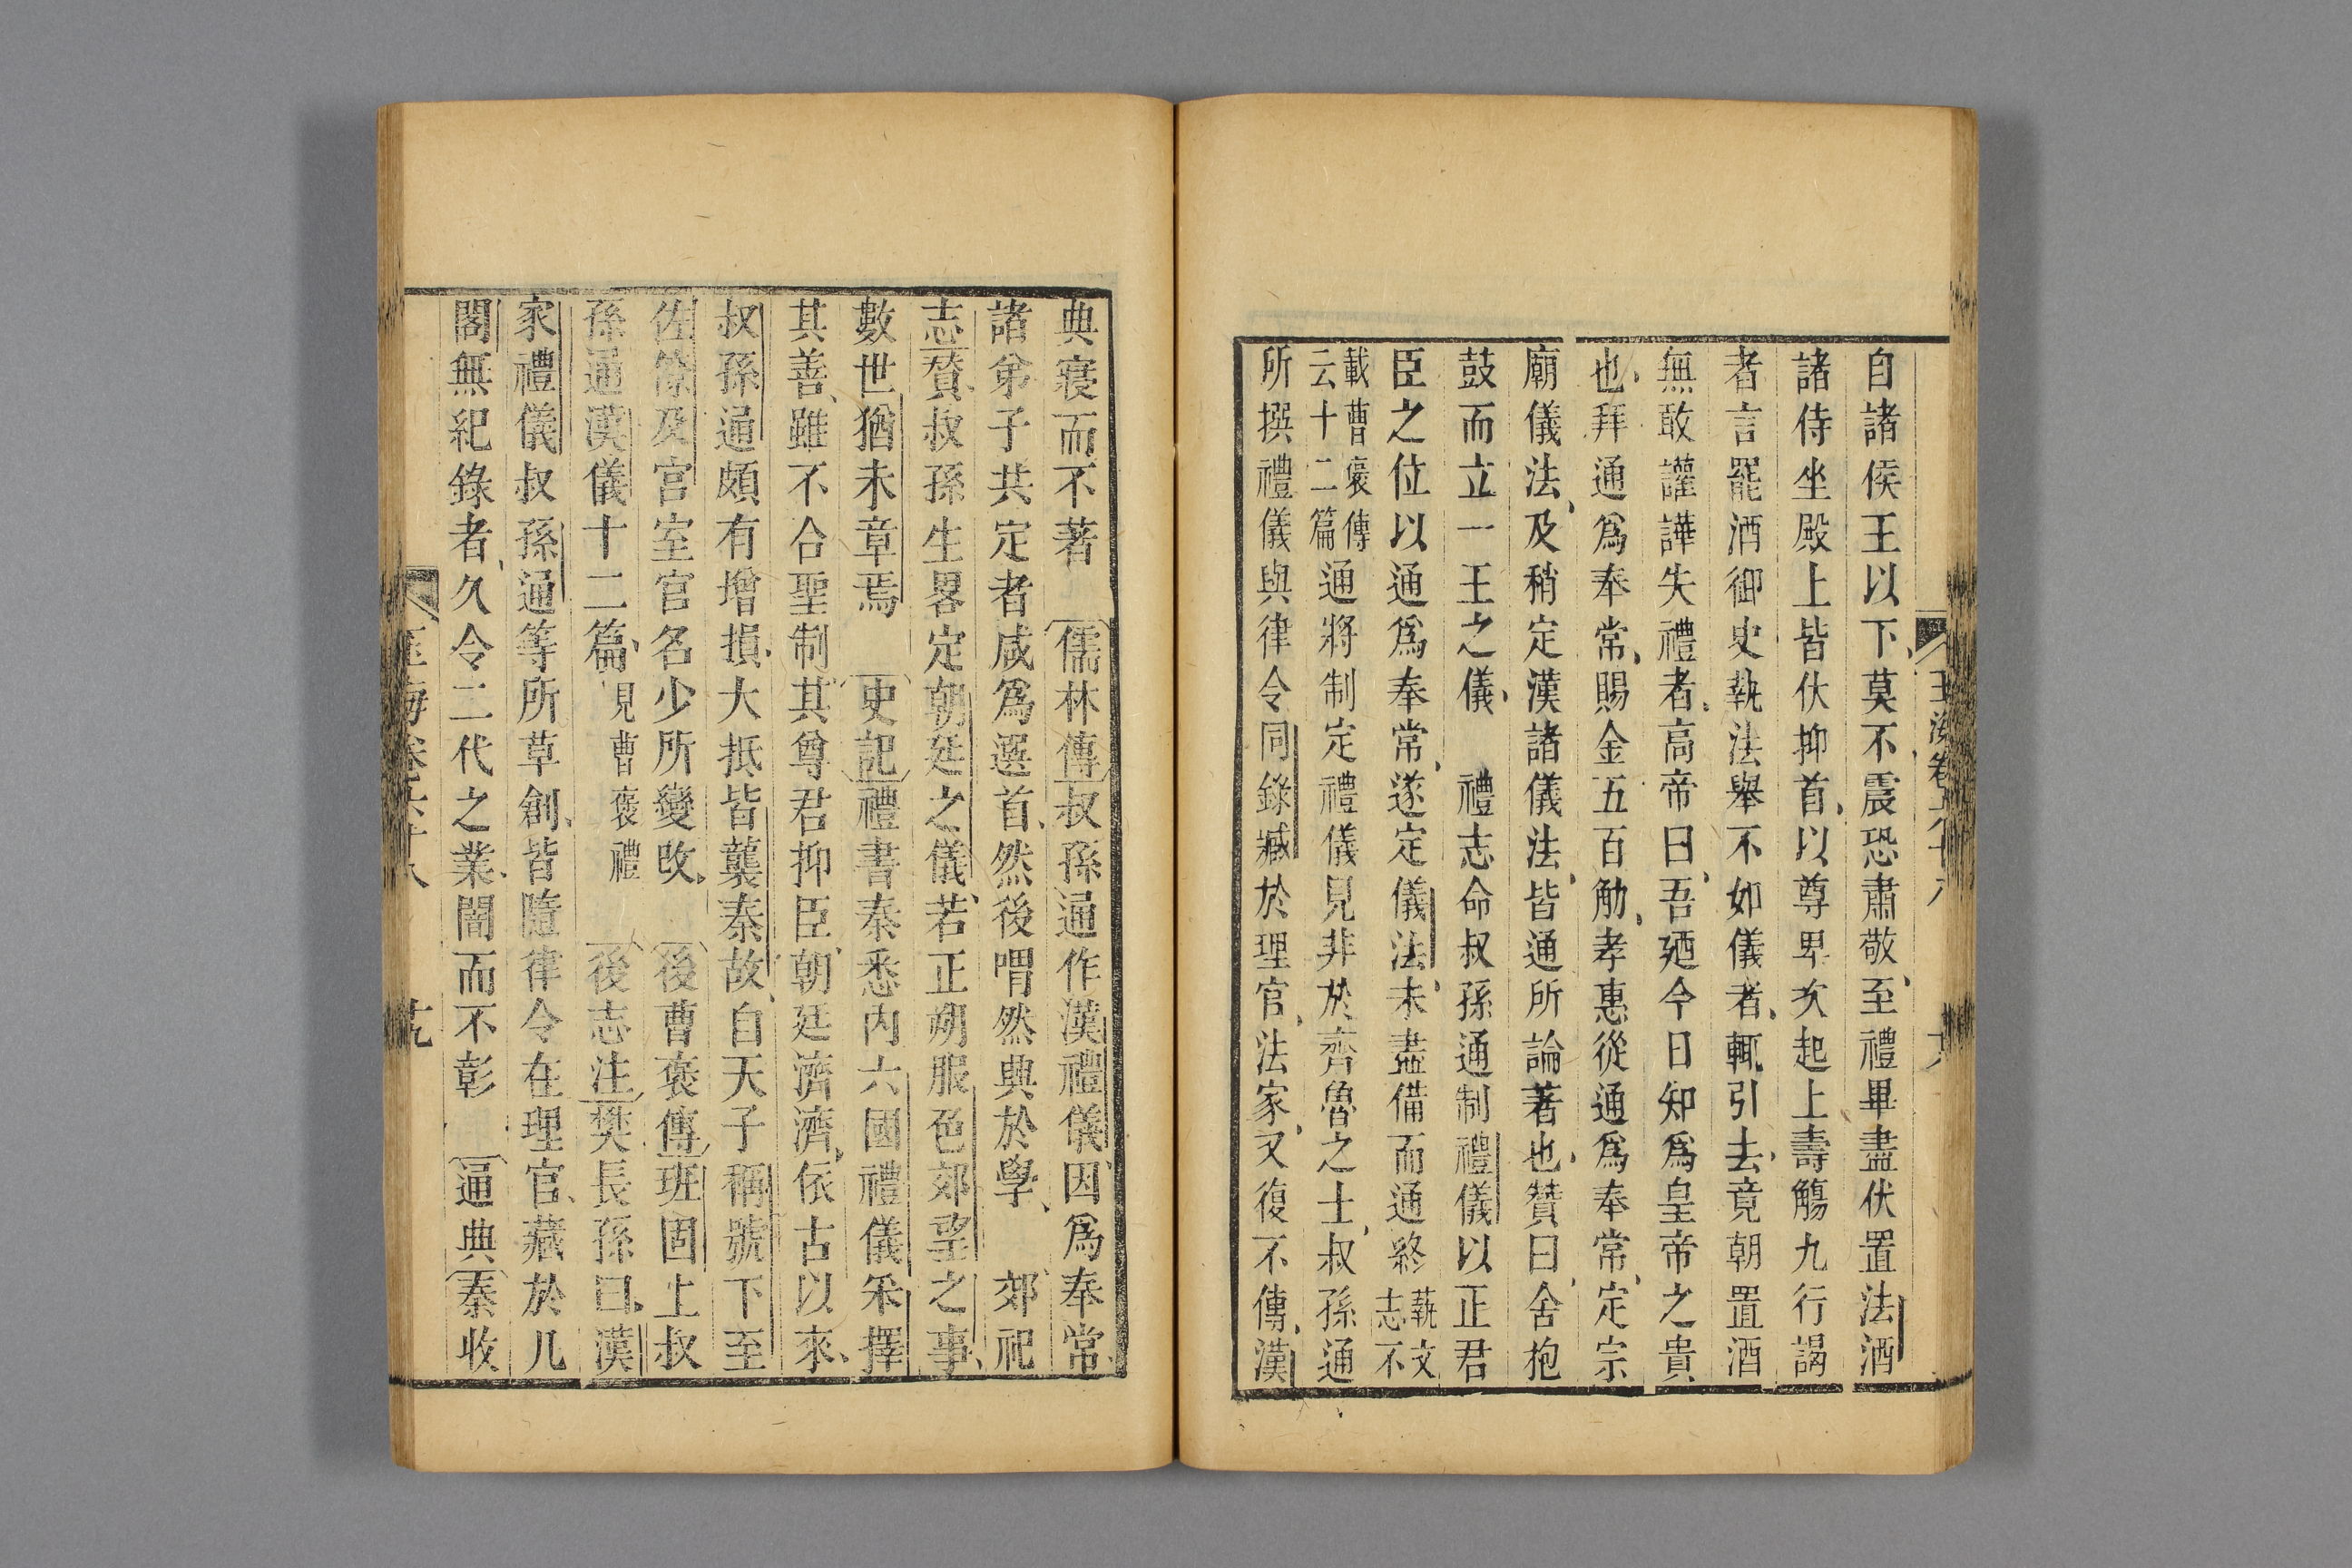 自諸侯王以下莫不震恐肅敬至禮畢盡伏置法酒
諸侍坐殿上皆伏抑首以尊卑次起上壽觴九行謁
者言罷酒御史執法舉不如儀者輒引去竟朝置酒
無敢讙譁失禮者高帝曰吾廼今日知爲皇帝之貴
也拜通爲奉常賜金五百觔孝惠從通爲奉常定宗
廟儀法及稍定漢諸儀法皆通所論著也贊曰舍抱
鼓而立一王之儀 禮志命叔孫通制禮儀以正君
臣之位以通爲奉常遂定儀法未盡備而通終 蓺文志不
載曹褒傳云十二篇 通將制定禮儀見非於齊魯之士叔孫通
所撰禮儀與律令同錄臧於理官法家又復不傳漢
典寑而不著 儒林傳叔孫通作漢禮儀因爲奉常
諸弟子共定者咸爲選首然後喟然興於學 郊祀
志贊叔孫生畧定朝廷之儀若正朔服色郊望之事
數世猶未章焉 史記禮書秦悉內六國禮儀采擇
其善雖不合聖制其尊君抑臣朝廷濟濟依古以來
叔孫通頗有增損大抵皆襲秦故自天子稱號下至
佐僚及宮室官名少所變改 後曹褒傳班固上叔
孫通漢儀十二篇 見曹褒禮 後志注樊長孫曰漢
家禮儀叔孫通等所草創皆隨律令在理官藏於几
閣無紀錄者久令二代之業闇而不彰 通典秦收
玉海卷六十八